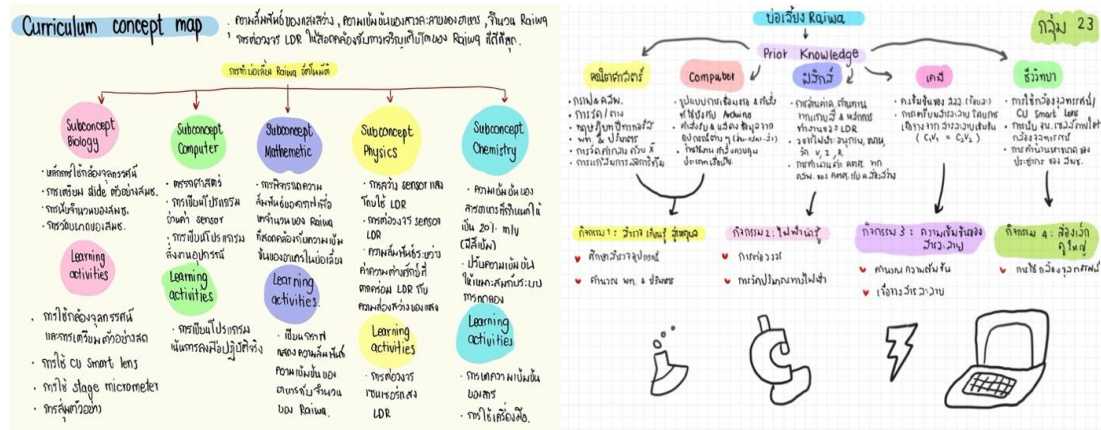 Curriculum concept map
ความสัมพันธ์ของแสงสว่าง, ความเข้มข้นของสารละลายของอาหาร, จำนวน Raiwa
การต่อวงจร LDR ให้สอดคล้องกับการเจริญเติบโตของ Raiwa ที่ดีที่สุด.
การทำบ่อเลี้ยง Raiwa อัตโนมัติ
Subconcept
Biology
• หลักการใช้กล้องจุลทรรศน์
• การเตรียม slide ตัวอย่างสมช.
• การนับจำนวนของสมช.
• การวัดขนาดของสมช.
Learning
activities
• การใช้กล้องจุลทรรศน์
และการเตรียมตัวอย่างสด
• การใช้ CU smart lens
• การใช้ stage micrometer
• การสุ่มตัวอย่าง
Subconcept
Computer
• ตรรกศาสตร์
• การเขียนโปรแกรม
อ่านค่า sensor
• การเขียนโปรแกรม
สั่งงานอุปกรณ์
Learning
activities
• การเขียนโปรแกรม
เน้นการลงมือปฏิบัติจริง
Subconcept
Mathemetic
• การพิจารณาความ
สัมพันธ์ของกราฟเพื่อ
หาจำนวนของ Raiwa
ที่สอดคล้องกับความเข้ม
ข้นของอาหารในบ่อเลี้ยง
Learning
activities.
• เขียนกราฟ
แสดงความสัมพันธ์
ความเข้มข้นของ
อาหารกับจำนวน
ของ Raiwa.
Subconcept
Physics
• การสร้าง sensor แสง
โดยใช้ LDR
• การต่อวงจร sensor
LDR
• ความสัมพันธ์ระหว่าง
ค่าความต่างศักย์ที่
ตกคร่อม LDR กับ
ความส่องสว่างของแสง
Learning
activities
• การต่อวงจร
เซนเซอร์แสง
LDR
Subconcept
Chemistry
• ความเข้มข้นของ
สารอาหารที่กำหนดให้
เป็น 20% m/v
• ปรับความเข้มข้น
ให้เหมาะสมกับระบบ
การทดลอง
Learning
activities
• การหาความเข้มข้น
ของสาร
• การใช้เครื่องมือ.
บ่อเลี้ยง Raiwa
กลุ่ม 23
Prior Knowledge
คณิตศาสตร์
• กราฟ & คสพ.
• การวัด / ตาราง
• ทฤษฎีบทปีทาโกรัส
• พท. & ปริมาตร
Computer
• รูปแบบการเชื่อมต่อ & คำสั่ง
ที่ใช้กับ Arduino
• คำสั่งรับ & แสดง ข้อมูลจาก
ฟิสิกส์
ทำงานของ LDR
วัด V, I, R
เคมี
• การเตรียมสารละลาย โดยการ
เจือจางจากสารละลายเข้มข้น
( C₁V₁ = C₂V₂ )
ชีววิทยา
• การใช้กล้องจุลทรรศน์/
CU Smart Lens
• การนับ จน. เซลล์ภายใต้
กล้องจุลทรรศน์
• การคำนวณหาขนาดของ
ประชากร ของ สมช.
กิจกรรม 1 : สำรวจ เรียนรู้
✓ ศึกษาสำรวจอุปกรณ์
✓ คำนวณ พท. & ปริมาตร
กิจกรรม 2 : ไฟฟ้าน่ารู้
✓ การต่อวงจร
✓ การวัดปริมาณทางไฟฟ้า
กิจกรรม 3 : ความเข้มข้นของ
สารละลาย
✓ คำนวณ ความเข้มข้น
✓ เจือจางสารละลาย
กิจกรรม 4 : ส่องเล็ก
ดูใหญ่
✓ การใช้กล้องจุลทรรศน์